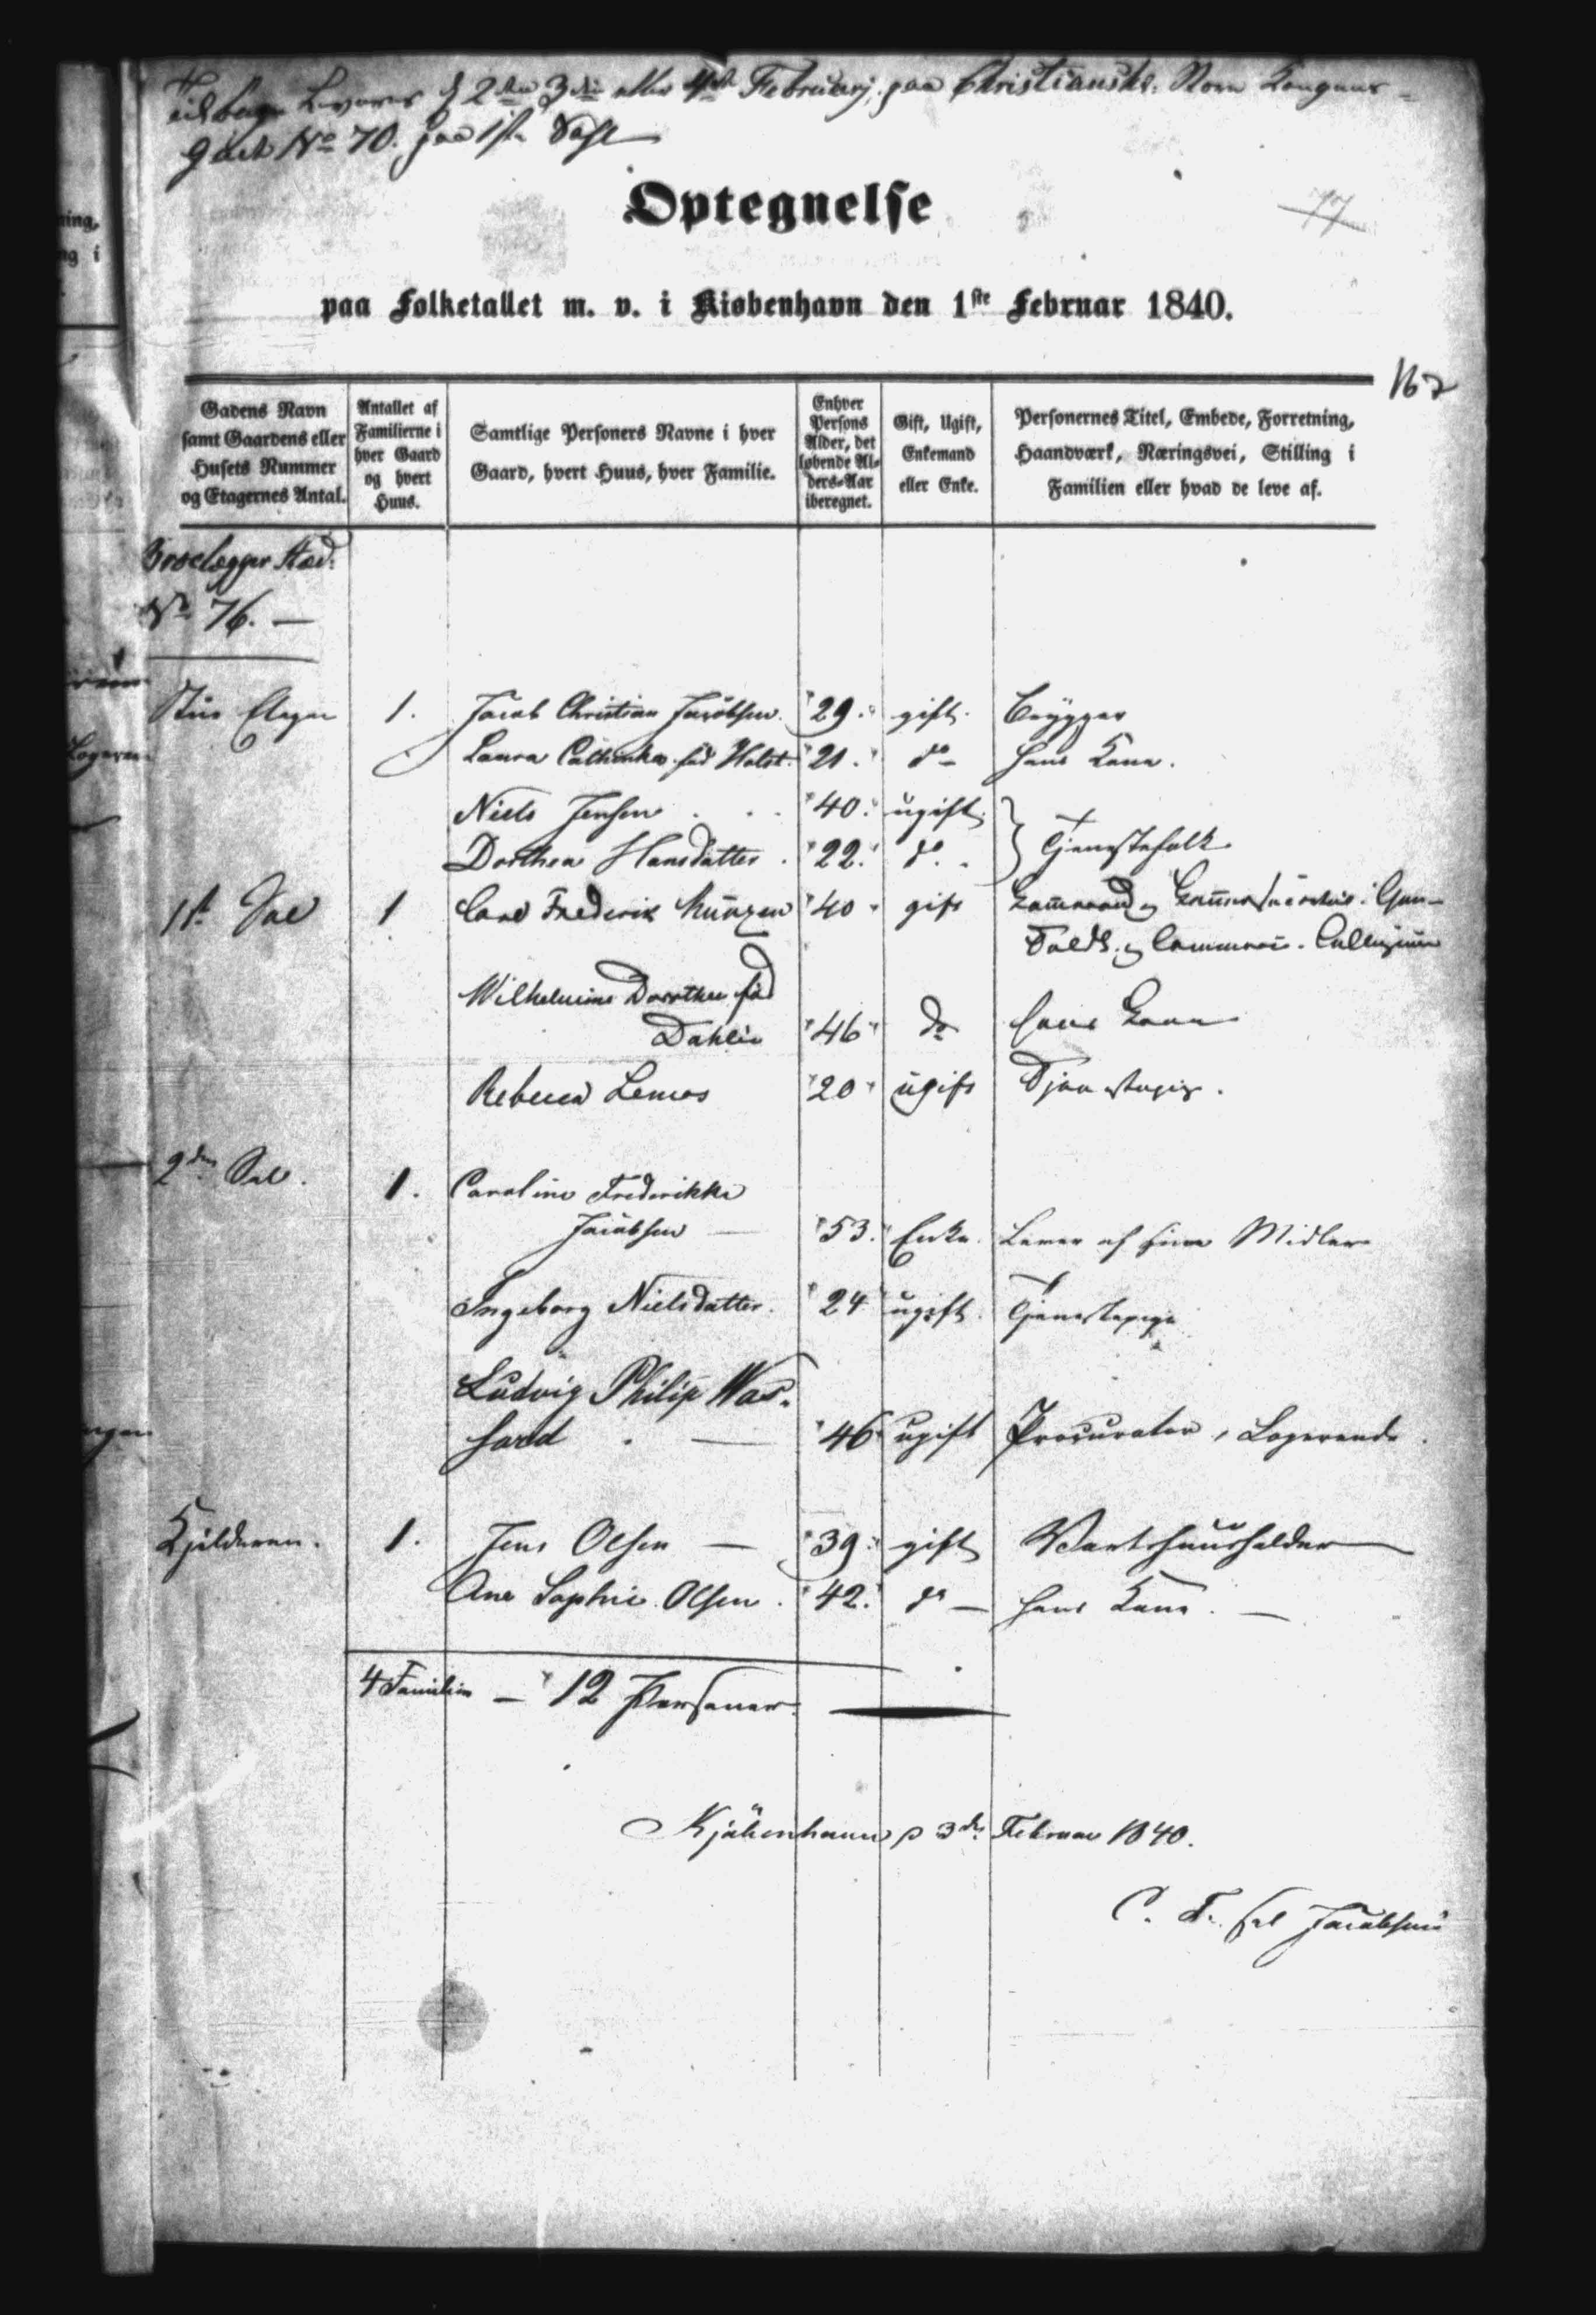 d 2den 3die eller 4de Februarj. paa Christiansh: Store Kongens=
gade No 70. paa 1ste Sahl
Optegnelse
77
paa Folketallet m. v. i Kiøbenhavn den 1ste Februar 1840.
162
Gadens Navn samt Gaardens eller Husets Nummer og Etagernes Antal.
Antallet af Familierne i hver Gaard og hvert Huus.
Samtlige Personers Navne i hver Gaard, hvert Huus, hver Familie.
Enhver Persons Alder, det løbende Al-ders-Aar iberegnet.
Gift, Ugift, Enkemand eller Enke.
Personernes Titel, Embede, Forretning, Haandværk, Næringsvei, Stilling i Familien eller hvad de leve af.
Brolægger Stræd:
No 76. —
Stue Etagen 1. Jacob Christian Jacobsen. 29. gift. Brygger
Laura Cathinka fød Holst. 21. do hans Kone.
Niels Jensen 40. ugift.
Dorthea Hansdatter. 22. do. } Tjenestefolk
1ste Sal 1 Carl Frederik 40 gift
Collegium
Wilhelmine Dorothea fød
Dahlin 46 do hans Kone
Rebecca Lemos 20 ugift Tjenestepige.
2den Sal. 1. Caroline Frederikke
Jacobsen — 53. Enke. Lever af sine Midler
Ingeborg Nielsdatter. 24 ugift. Tjenestepige
Ludvig Philip Was-
sard. — 46 ugift Procurator, Logerende.
Kjelderen. 1. Jens Olsen — 39. gift Værtshuusholder
Ane Sophie Olsen. 42. do — hans Kone. —
4 Familier — 12 Personer.
Kjøbenhavn d 3de Februar 1840.
C. F. sal Jacobsens